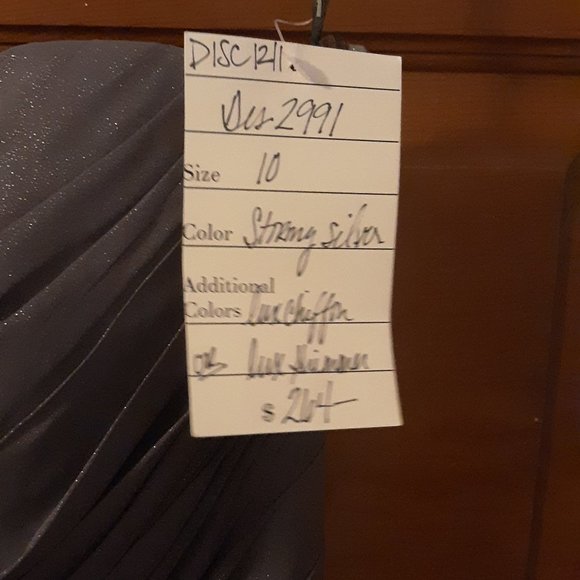 DISC 12/11.
Des 2991
Size 10
Color Stormy silver
Additional
Colors lux chiffon
or lux shimmer
$ 264